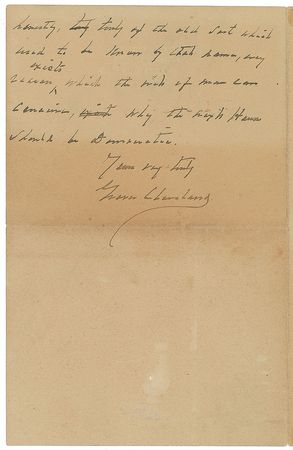 honesty, truly of the old sort which
used to be known by that name, every
exists
reason, which the mind of man can
conceive, why the next House
should be Democratic.
Yours very truly
Grover Cleveland